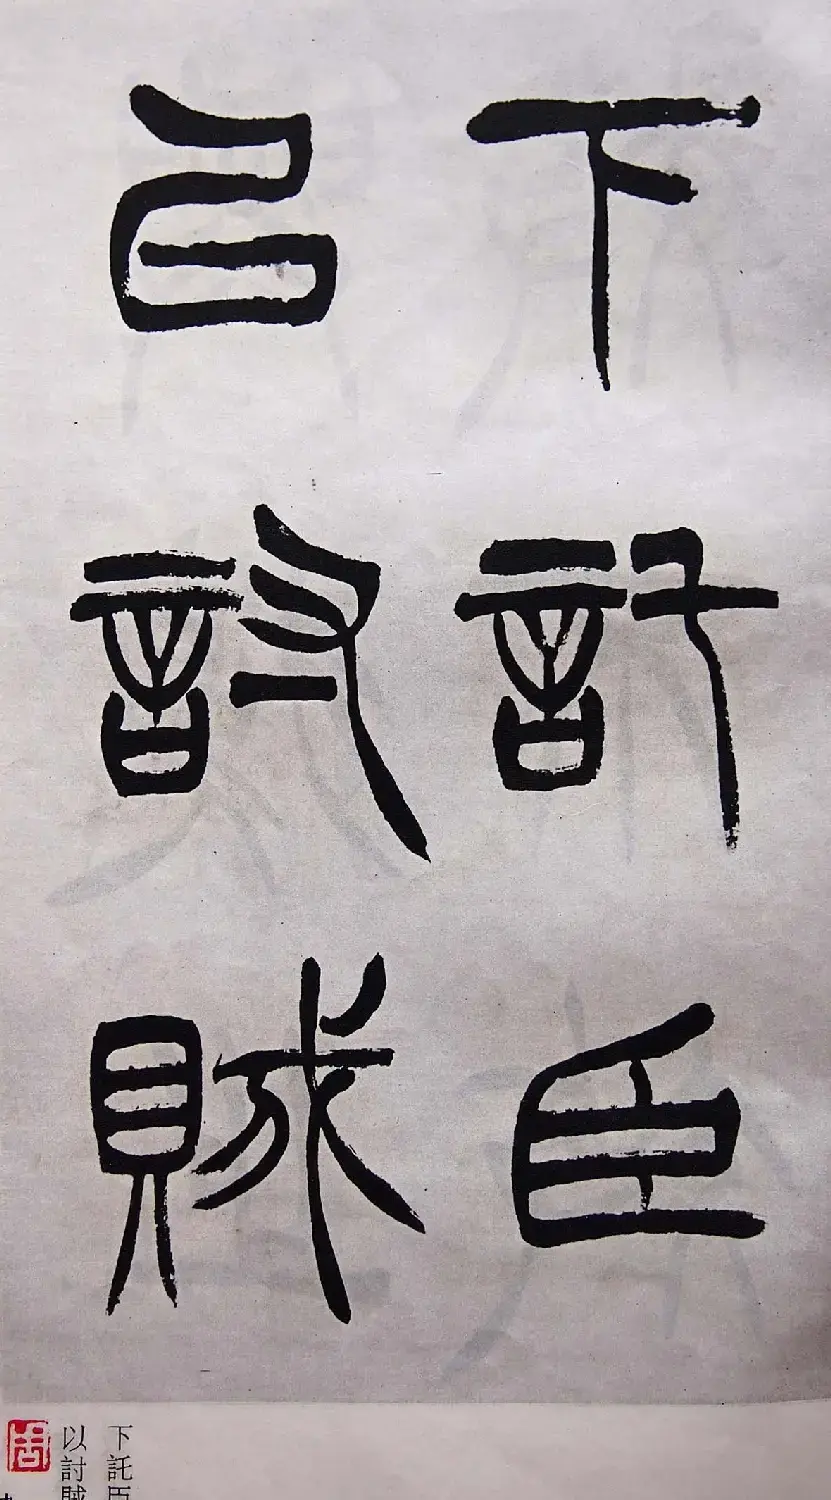 下託臣
以討賊
下託臣
以討賊